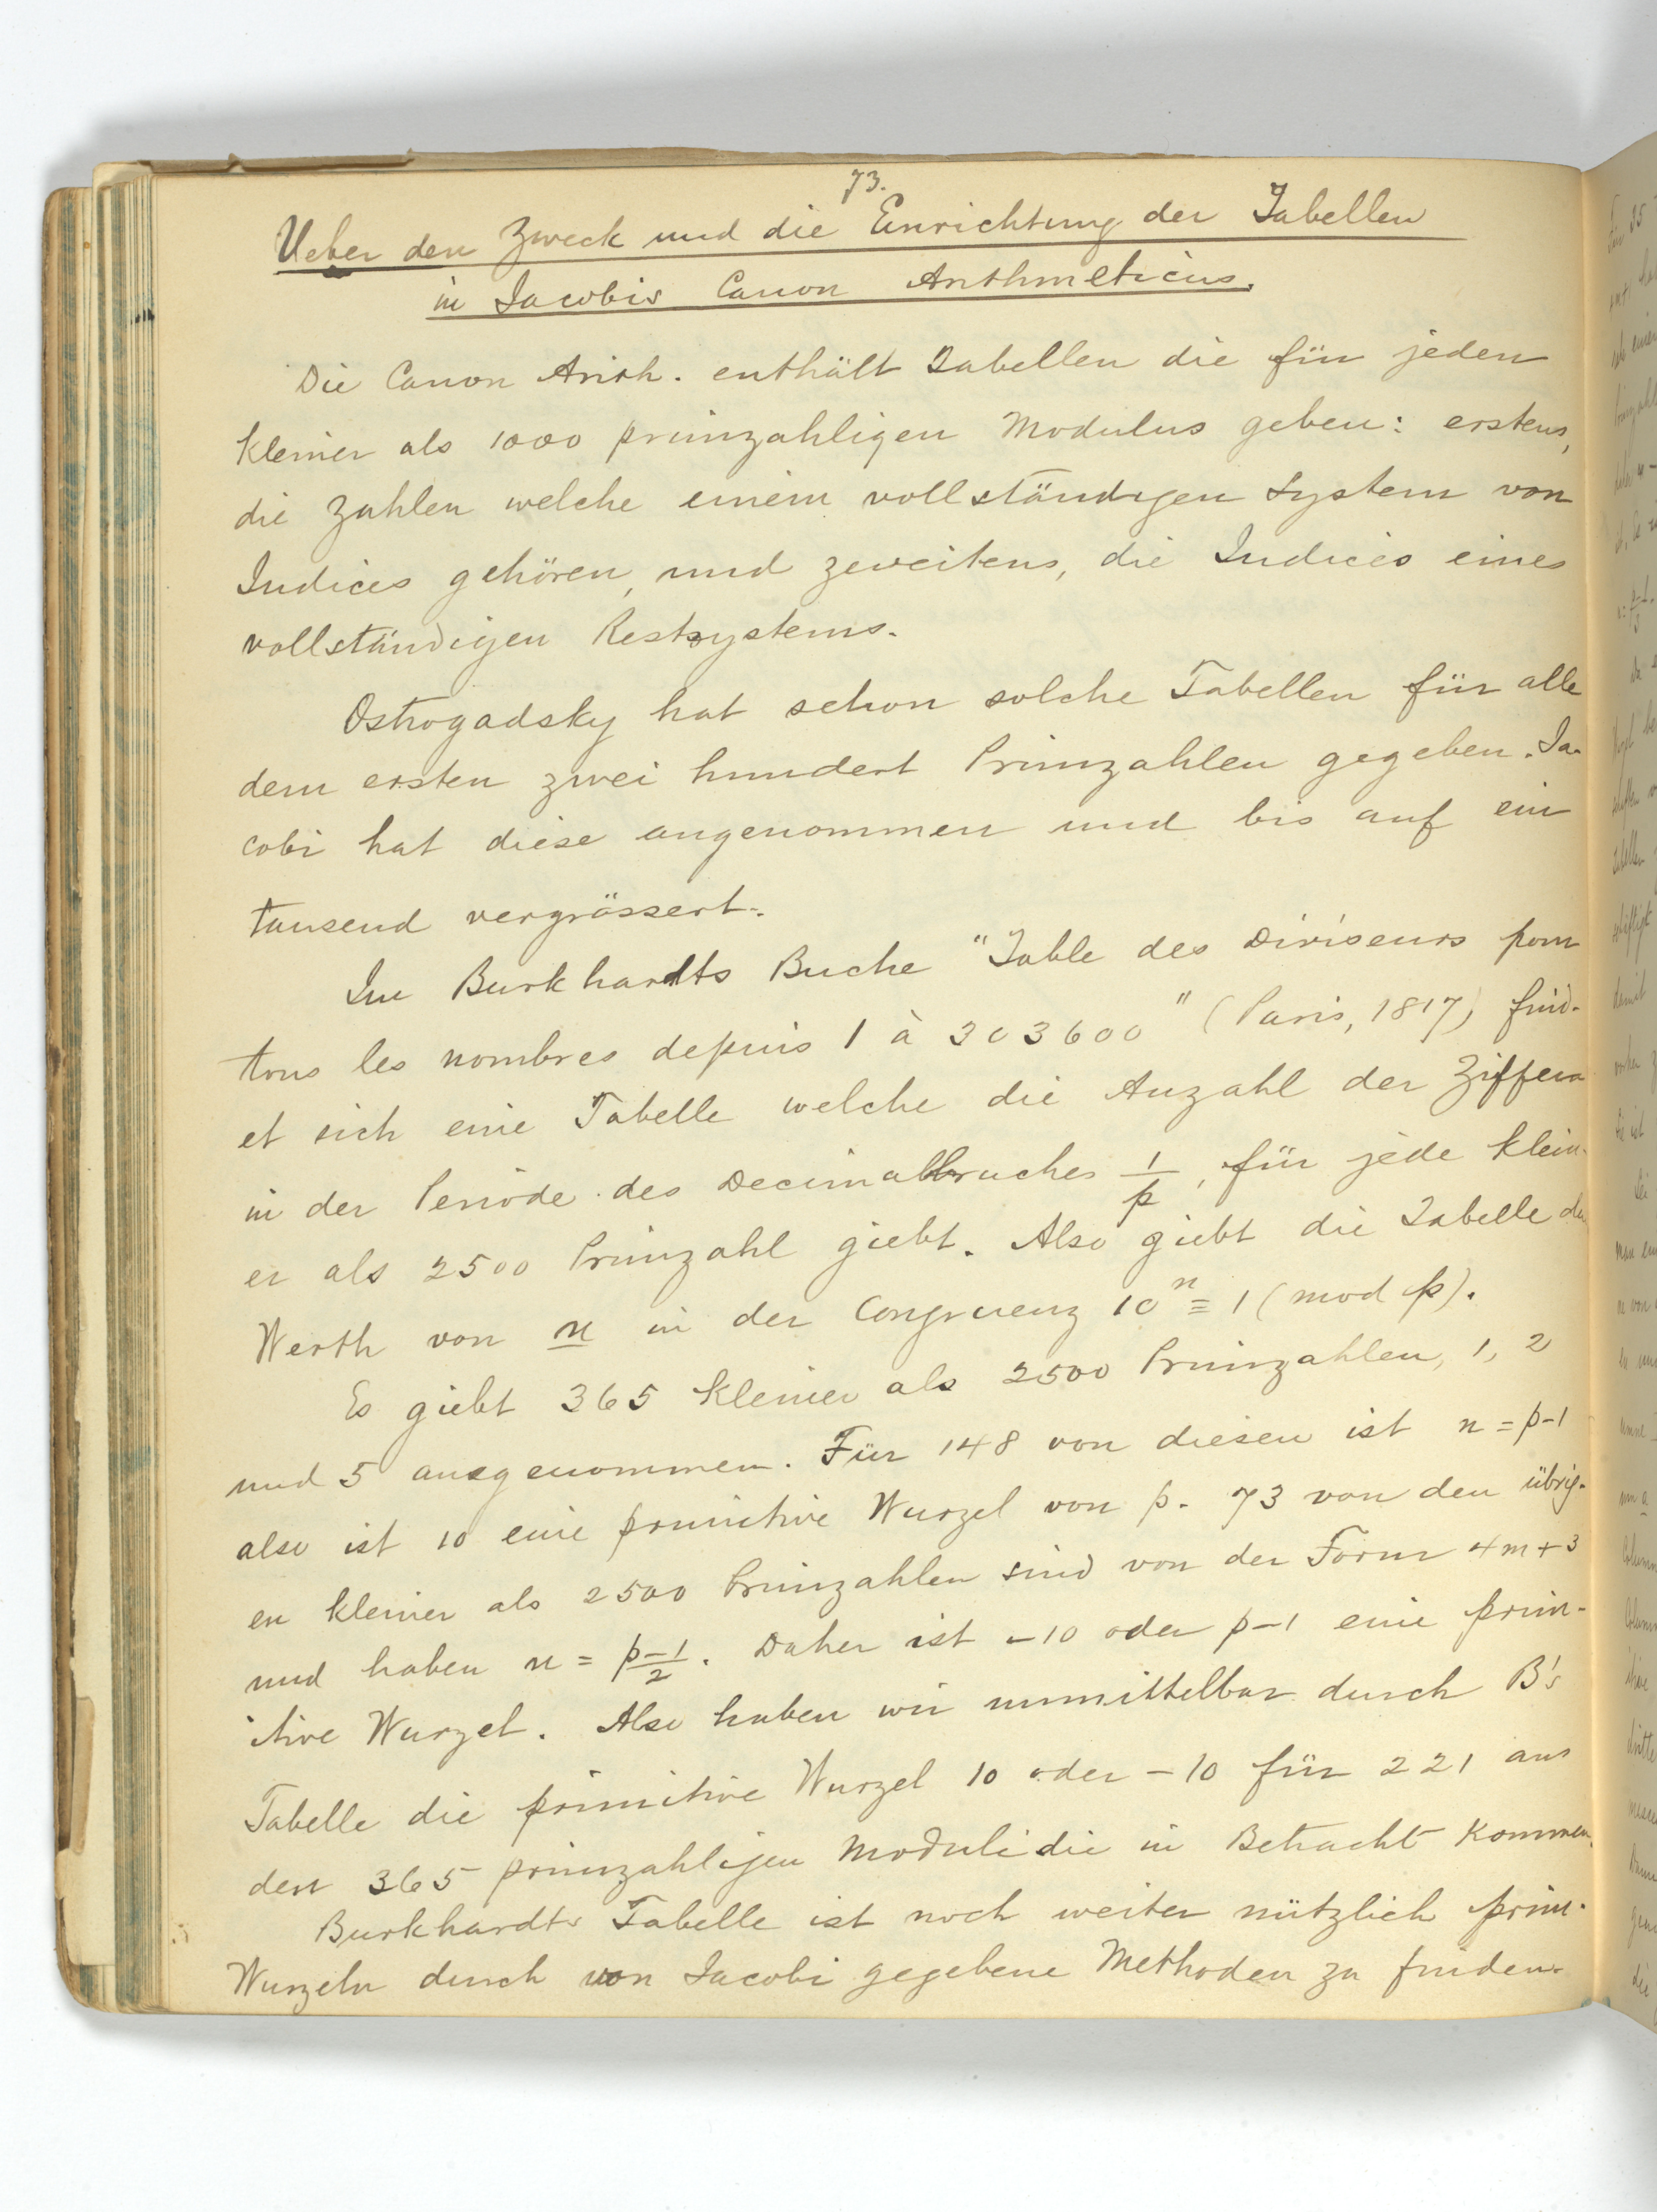 73.
Ueber den Zweck und die Einrichtung der Tabellen
in Jacobis Canon Arithmeticus.
Die Canon Arith. enthält Tabellen die für jeden
kleiner als 1000 primzahligen Modulus geben: erstens,
die Zahlen welche einem vollständigen System von
Indices gehören, und zweitens, die Indices eines
vollständigen Restsystems.
Ostrogadsky hat schon solche Tabellen für alle
dem ersten zwei hundert Primzahlen gegeben. Ja-
cobi hat diese angenommen und bis auf ein
tausend vergrössert.
In Burkhardts Buche "Table des Diviseurs pour
tous les nombres depuis 1 à 303600" (Paris, 1817) find-
et sich eine Tabelle welche die Anzahl der Ziffern
in der Periode des Decimalbruches 1/p, für jede klein-
er als 2500 Primzahl giebt. Also giebt die Tabelle den
Werth von n in der Congruenz 10^n ≡ 1 (mod p).
Es giebt 365 kleiner als 2500 Primzahlen, 1, 2
und 5 ausgenommen. Für 148 von diesen ist n = p-1
also ist 10 eine primitive Wurzel von p. 73 von den übrig-
en kleiner als 2500 Primzahlen sind von der Form 4m+3
und haben n = p-1/2. Daher ist -10 oder p-1 eine prim-
itive Wurzel. Also haben wir unmittelbar durch B's
Tabelle die primitive Wurzel 10 oder -10 für 221 aus
den 365 primzahligen Moduli die in Betracht kommen.
Burkhardts Tabelle ist noch weiter nützlich prim.
Wurzeln durch von Jacobi gegebene Methoden zu finden.